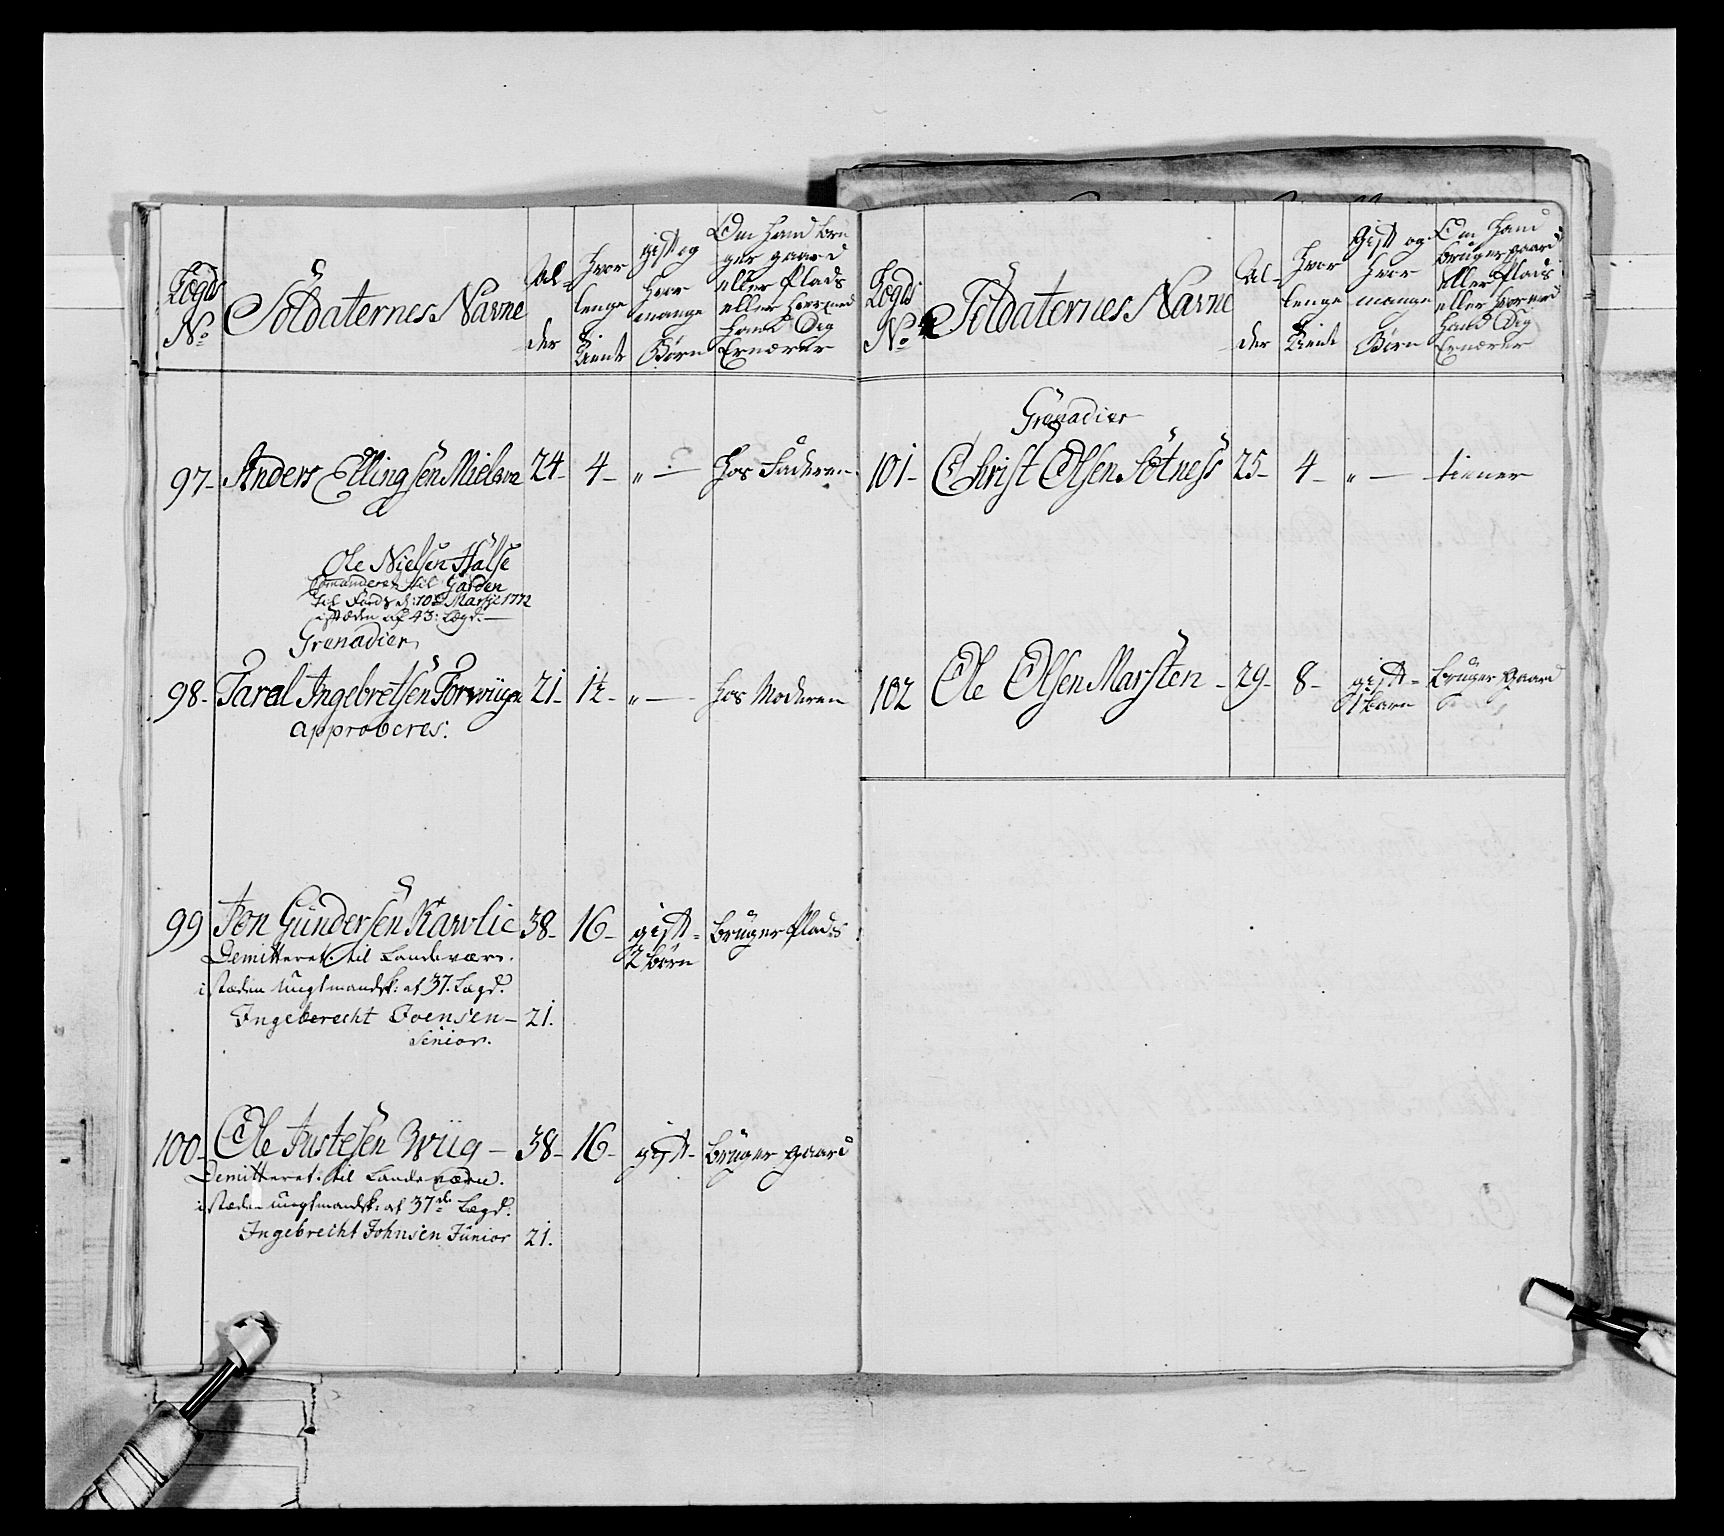 Lægds No Soldaternes Navne Alder Hvor lenge Tient gift og hvor mange Børn Om hand bruger gaard eller Plads eller hvormed hand Sig Ernærer
97- Anders Ellingsen 24- 4- „— hos Faderen
Ole Nielsen Halse
Comanderet til Garden
til Fods d: 10de Martji 1772
i stæden af 43: Lægd.—
Grenadier
98- Taral Ingebretsen 21- 1½- „— hos Moderen
approberes:
99 Jon Gundersen Kawlie 38- 16- gift- bruger Plads
2 børn
Demitteret til Landeværn.
i stæden ungt mandsk: af 37. Lægd.
Ingeberecht Joensen— 21.
Senior.
100- Ole Justesen Wiig— 38- 16- gift- bruger gaard
Demitteret til Landeværn.
i stæden ungt mandsk: af 37de Lægd.
Ingebrecht Johnsen Junior 21.
Lægds No Soldaternes Navne Alder Hvor lenge Tient Gift og hvor mange Børn Om hand bruger gaard eller Plads eller hvormed hand Sig Ernærer
Grenadier
101- Christ Olsen Sötness 25- 4- „— tiener
102 Ole Olsen Marsten- 29- 8- gift- bruger gaard
1 barn